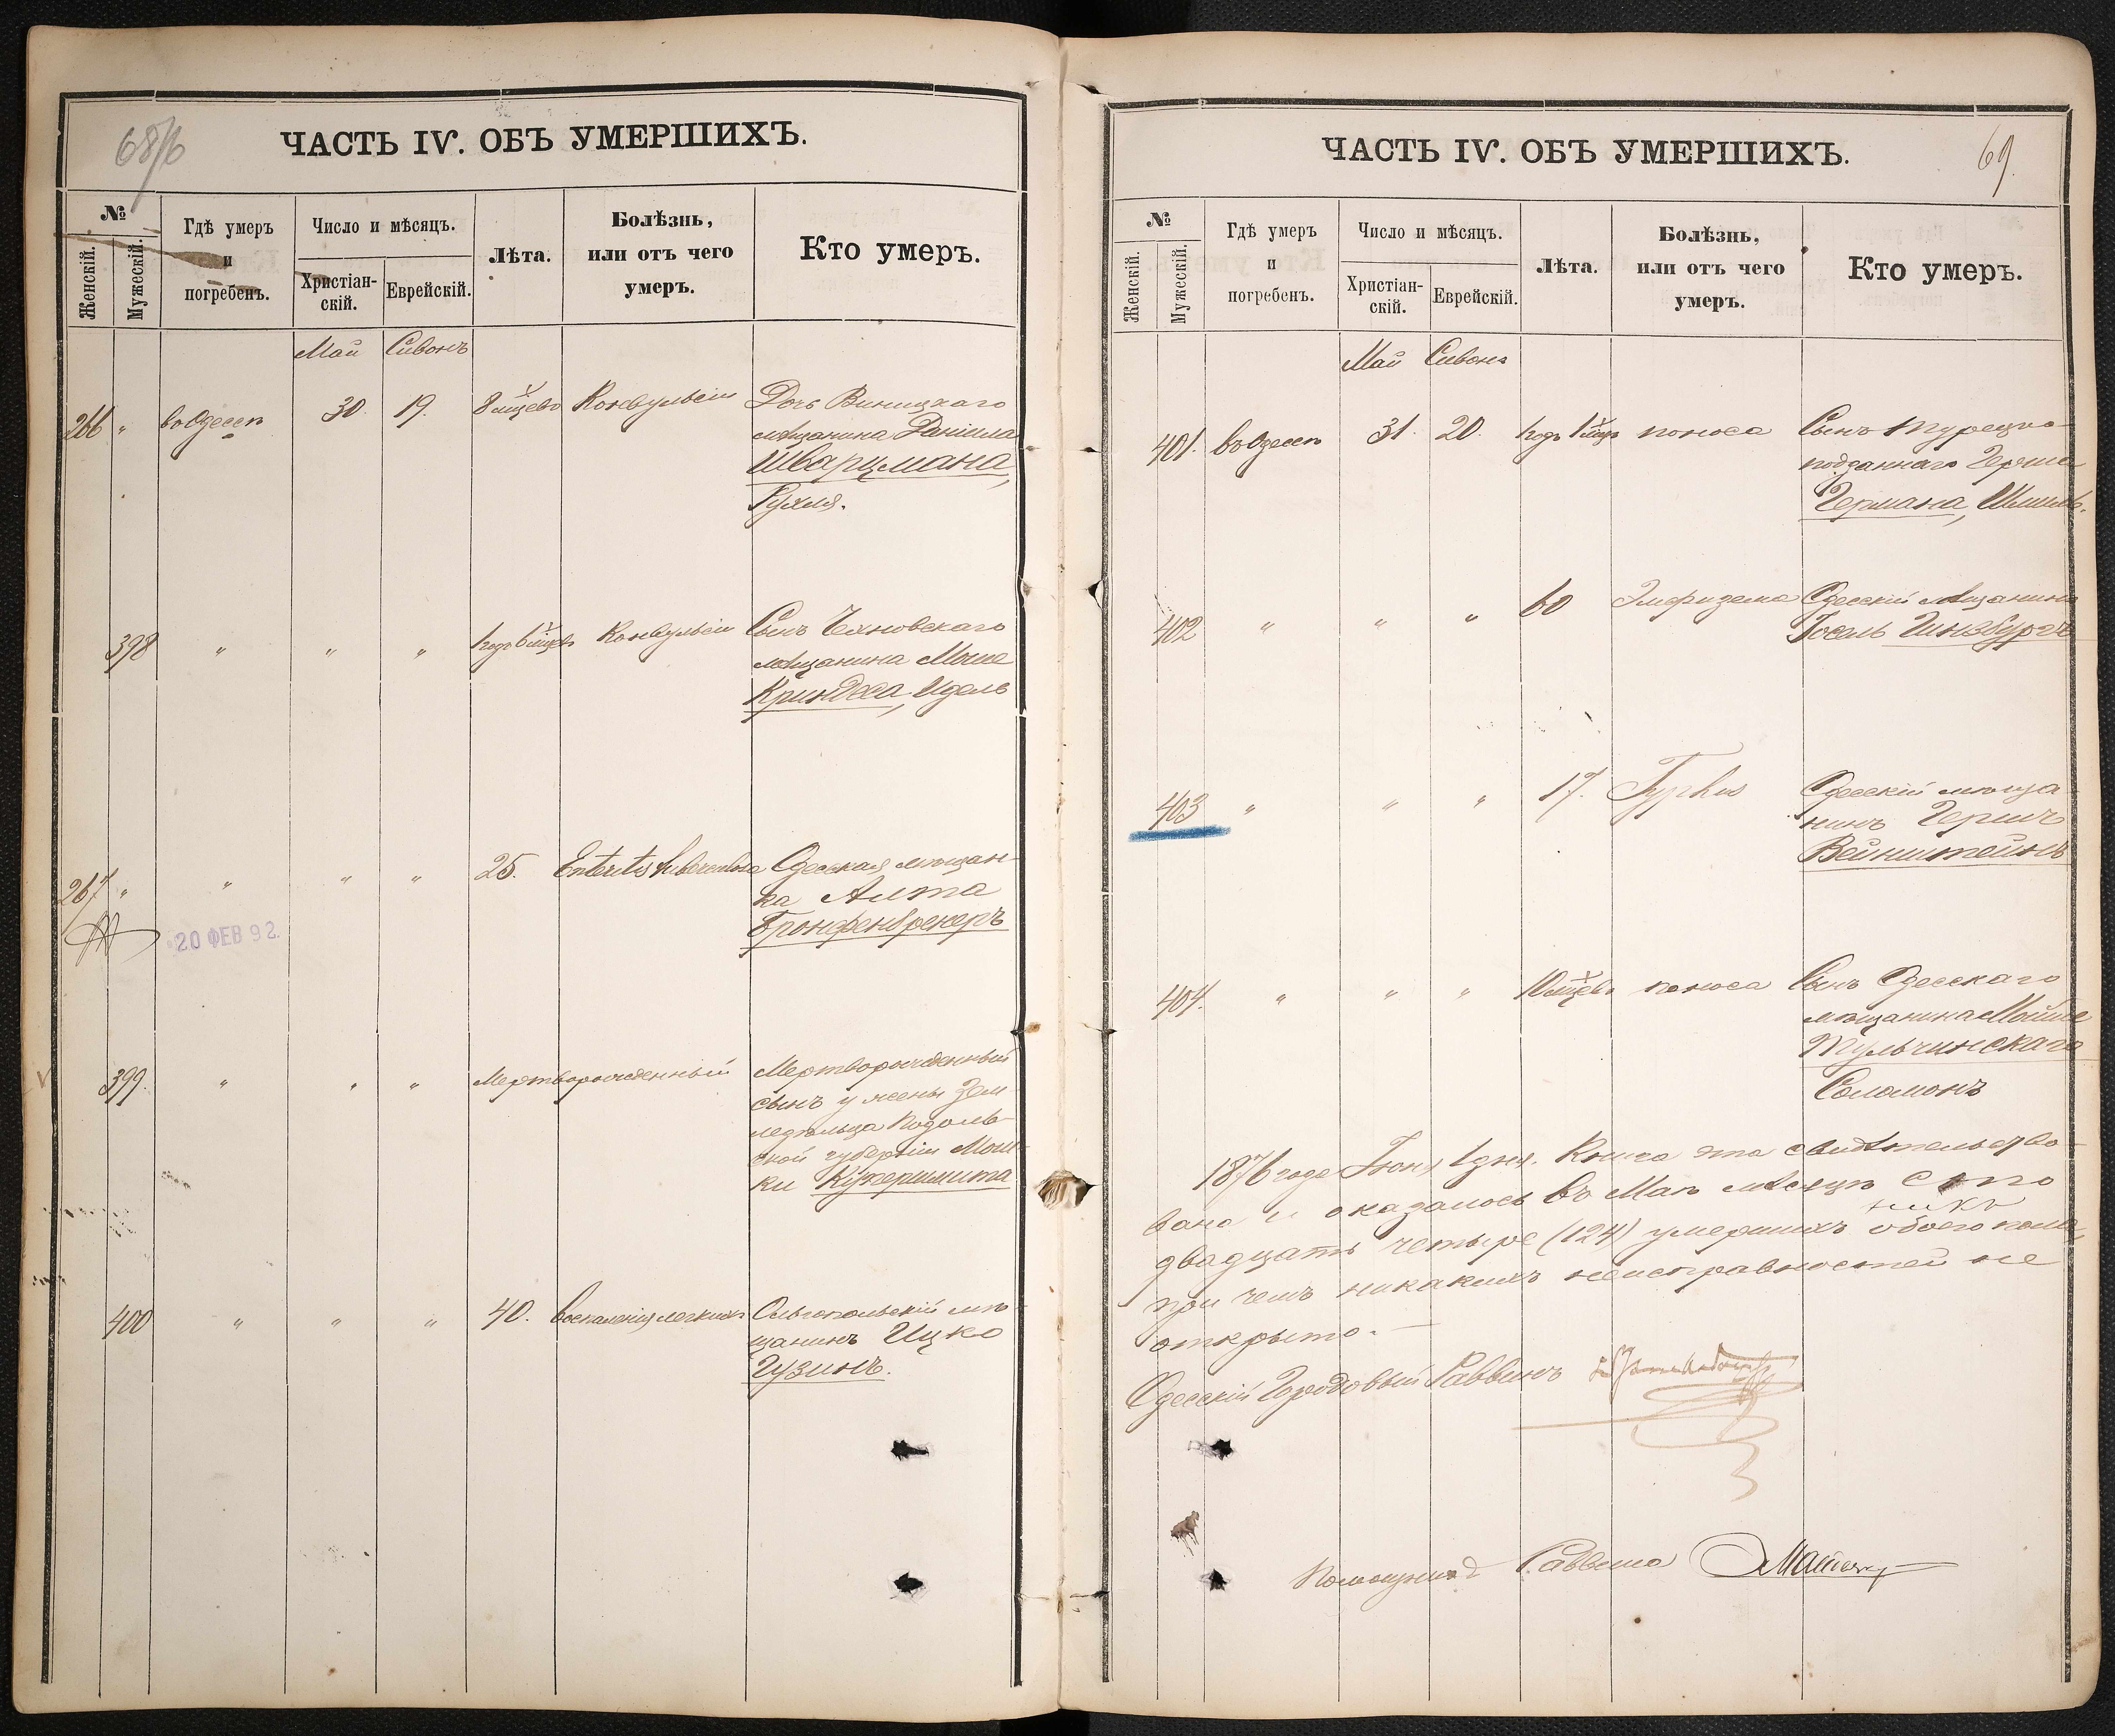 68/76
ЧАСТЬ IV. ОБЪ УМЕРШИХЪ.
№
Женскій.
Мужескій.
Гдѣ умеръ
и
погребенъ.
Число и мѣсяцъ.
Христіан-
скій.
Еврейскій.
Лѣта.
Болѣзнь,
или отъ чего
умеръ.
Кто умеръ.
Май Сивонъ
266 " во Одессѣ 30. 19. 8 мѣцевъ Конвульсіи Дочь Виницкаго
мѣщанина Даніила
Шварцмана,
Рухля.
398 " " " годъ 6 мѣцевъ Конвульсіи Сынъ Чехновскаго
мѣщанина Моше
Криндеса, Идель
267 " " " " 25. Enteritis tuberculosa Одесская мѣщан-
ка Алта
Бронфенбренеръ
20 ФЕВ 92.
399. " " " Мертворожденный Мертворожденный
сынъ у жены Зем
ледѣльца Подоль-
ской губерніи Мош-
ки
400 " " " 40. воспаленія легкихъ Ольгопольскій мѣ-
щанинъ Ицко
Гузинъ.
69.
ЧАСТЬ IV. ОБЪ УМЕРШИХЪ.
№
Женскій.
Мужескій.
Гдѣ умеръ
и
погребенъ.
Число и мѣсяцъ.
Христіан-
скій.
Еврейскій.
Лѣта.
Болѣзнь,
или отъ чего
умеръ.
Кто умеръ.
Май Сивонъ
401. во Одессѣ 31. 20. годъ 1 мѣцъ поноса Сынъ турецко-
подданнаго Герша
Германа, Шмиль.
402 " " " 60 Эмфизема Одесскій мѣщанинъ
Іосель Гинзбургъ
403 " " " 17. Typhus Одесскій мѣща-
нинъ Гершъ
Вейнштейнъ
404. " " " 10 мѣцевъ поноса Сынъ Одесскаго
мѣщанина Мойше
Тульчинскаго
Соломонъ
1876 года Іюня 1 дня. Книга эта свидѣтельство-
вана и оказалось въ Маѣ мѣсяцѣ сто
двадцать четыре (124) умершихъ обоего пола,
при чемъ никакихъ неисправностей не
открыто.—
Одесскій Городовый Раввинъ
Помощникъ Раввина